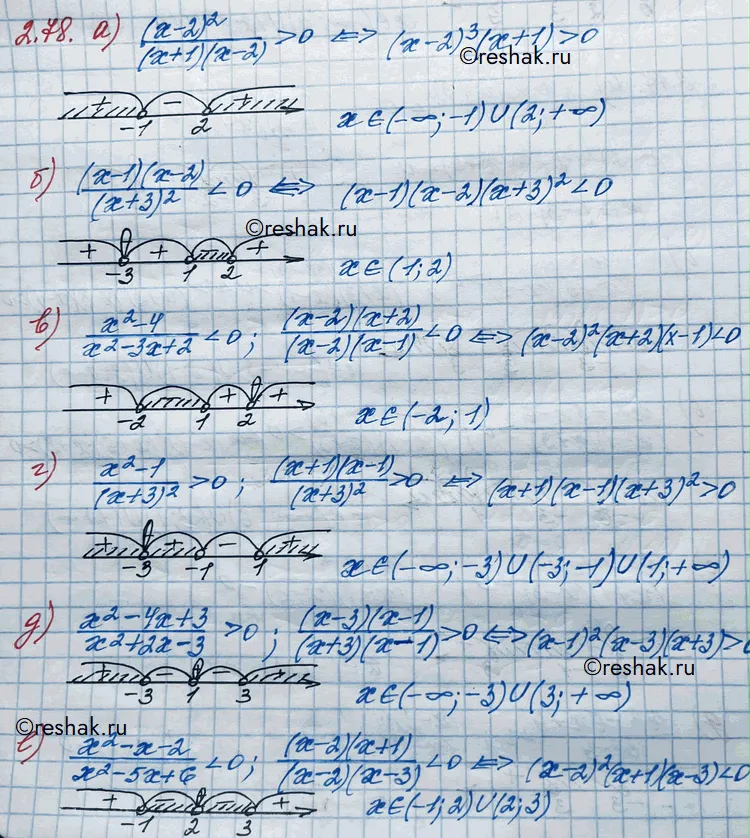 2.78. а) (x-2)²/((x+1)(x-2)) > 0 ⇔ (x-2)³(x+1) > 0
©reshak.ru
+ - + -1 2 x∈(-∞;-1)∪(2;+∞)
б) ((x-1)(x-2))/(x+3)² < 0 ⇔ (x-1)(x-2)(x+3)² < 0
©reshak.ru
+ + + -3 1 2 x∈(1;2)
в) (x²-4)/(x²-3x+2) < 0; ((x-2)(x+2))/((x-2)(x-1)) < 0 ⇔ (x-2)²(x+2)(x-1) < 0
+ + + -2 1 2 x∈(-2;1)
г) (x²-1)/(x+3)² > 0; ((x+1)(x-1))/(x+3)² > 0 ⇔ (x+1)(x-1)(x+3)² > 0
+ + - + -3 -1 1 x∈(-∞;-3)∪(-3;-1)∪(1;+∞)
д) (x²-4x+3)/(x²+2x-3) > 0; ((x-3)(x-1))/((x+3)(x-1)) > 0 ⇔ (x-1)²(x-3)(x+3) > 0
©reshak.ru
+ - - + -3 1 3 x∈(-∞;-3)∪(3;+∞)
©reshak.ru
е) (x²-x-2)/(x²-5x+6) < 0; ((x-2)(x+1))/((x-2)(x-3)) < 0 ⇔ (x-2)²(x+1)(x-3) < 0
+ + -1 2 3 x∈(-1;2)∪(2;3)